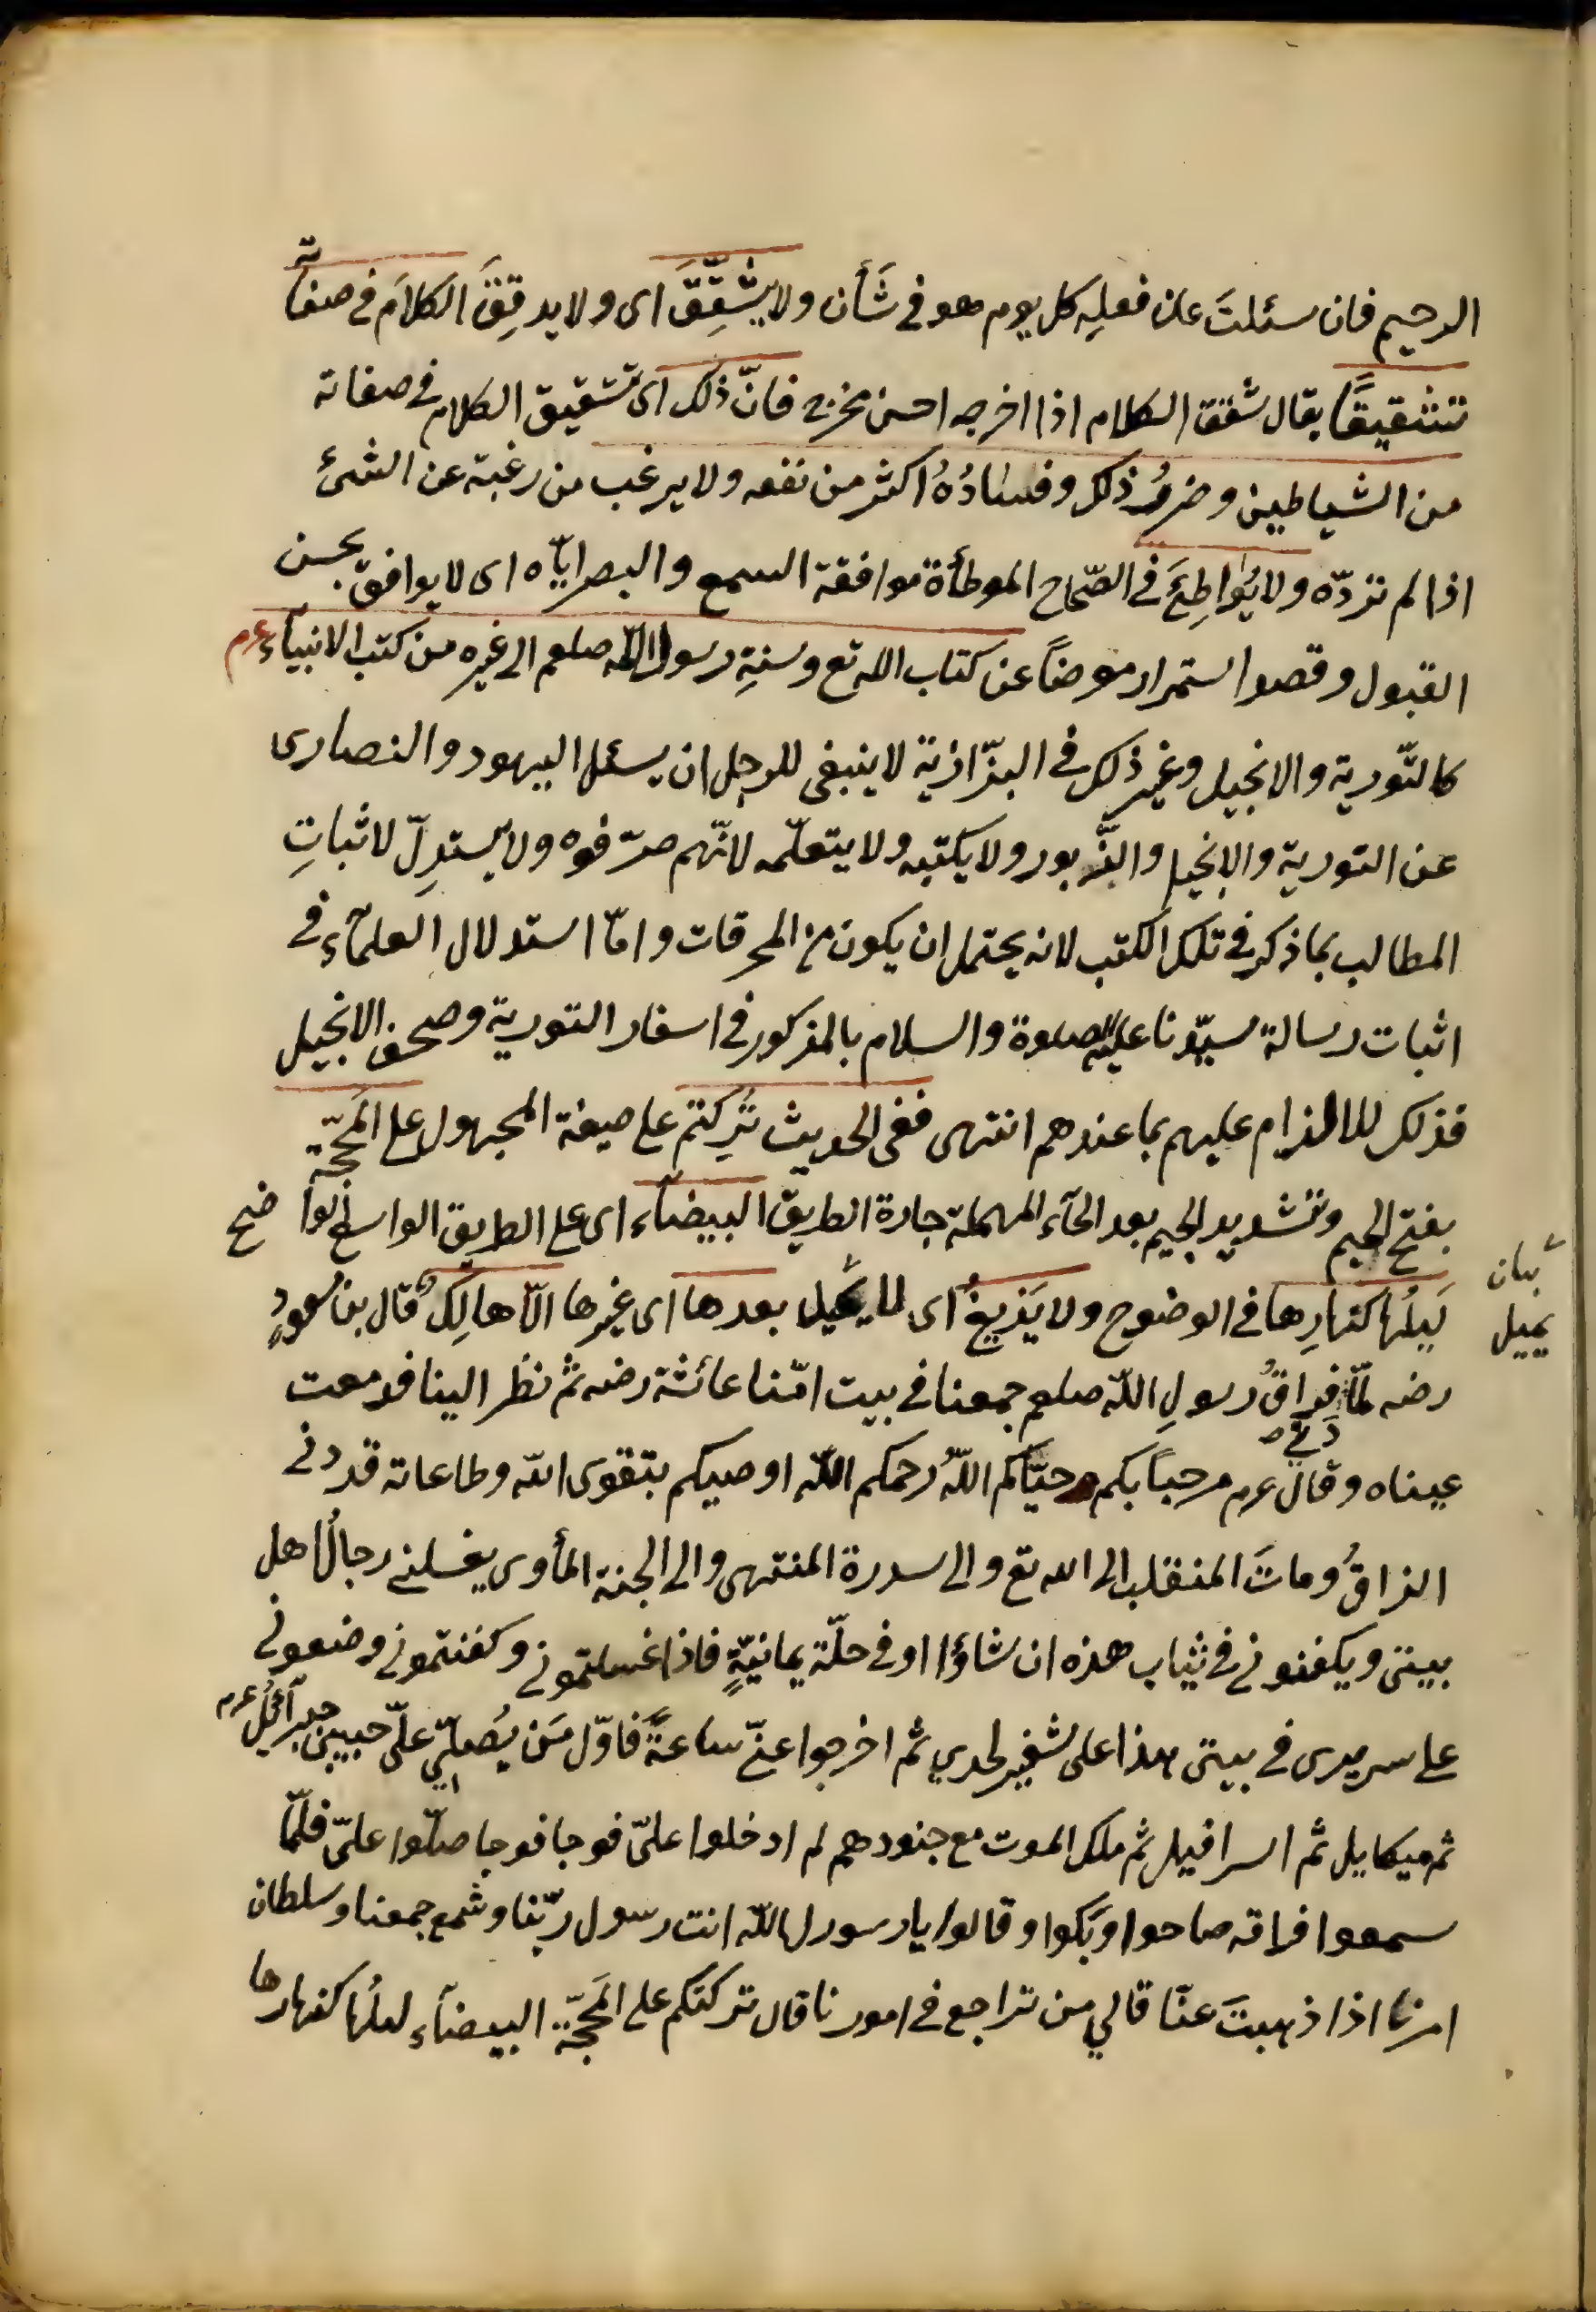 الرحيم فان سئلتَ عن فعلِه كل يوم هو فى شَأن ولا يُشَقِّقَ اى ولا يدقِقَ الكلامَ فى صفاته
تشقيقًا يقال شقق الكلام اذا اخرجه احسن مخرج فانّ ذلك اى تشقيق الكلام فى صفاته
من الشياطين وضرُّ ذلك وفسادُهُ اكثر من نفعه ولا يرغب من رغبة عن الشئ
اذا لم تردّه ولا يُواطِئَ فى الصّحاح الموطأة موافقة السمع والبصر ايّاه اى لا يوافق بحسن
القبول وقصد استمرار معرضاً عن كتاب الله تع وسنةِ رسول الله صلعم الى غيره من كتب الانبيآء عرم
كالتّورية والانجيل وغير ذلك فى البزّازية لا ينبغى للرجل ان يسئل اليهود والنصارى
عن التورية والانجيل والزَّبور ولا يكتبه ولا يتعلّمه لانّهم حرّفوه ولا يستدِلّ لاثباتِ
المطالب بما ذكر فى تلك الكتب لانه يحتمل ان يكون من المحرفات وامّا استدلال العلمآء فى
اثبات رسالة سيّدنا عليه الصلوة والسلام بالمذكور فى اسفار التورية وصحف الانجيل
فذلك للالزام عليهم بما عندهم انتهى ففى الحديث تُرِكتم على صيغة المجهول على المَحَجّة
بفتح الميم وتشديد الجيم بعد الحآء المهملة جادة الطريق البيضآء اى على الطريق الواسط الواضح
لَيلُها كنهارِها فى الوضوح ولا يَزيغُ اى لا يميل بعدها اى غيرها الّا هالِكٌ قال بن مسعودٍ
رضه لمّا دنى فراقُ رسولِ اللّه صلعم جمعنا فى بيت امّنا عائشة رضه ثم نظر الينا فدمعت
عيناه وقال عرم مرحباً بكم وحيّاكم اللّهُ رحمكم اللّه اوصيكم بتقوى اللّه وطاعاته قد دنى
الفراقُ وماتَ المنقلب الى الله تع والى سدرة المنتهى والى الجنة المأوى يغسلنى رجالُ اهل
بيتى ويكفنونى فى ثياب هذه ان شاؤا او فى حلّة يمانيّةٍ فاذا غسلتمونى وكفنتمونى وضعونى
على سريرى فى بيتى هذا على شفير لحدي ثم اخرجوا عنّى ساعةً فاوّل مَن يُصلّي علىّ حبيبى جبرآئيلُ عرم
ثم ميكايل ثم اسرافيل ثم ملك الموت مع جنودهم ثم ادخلوا علىّ فوجا فوجا صلّوا علىّ فلمّا
سمعوا فراقه صاحوا وبَكوا وقالوا يا رسول اللّه انت رسول ربّنا وشمع جمعنا وسلطان
امرنا اذا ذهبتَ عنّا فالي من نراجع فى امورنا قال تركتكم على المَحَجّة البيضآء ليلُها كنهارها
يميل